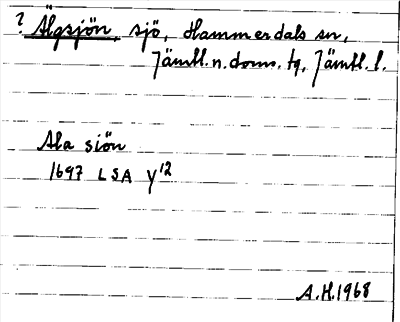 ? Älgsjön, sjö, Hammerdals sn,
Jämtl. n. doms. tg, Jämtl. l.
Ala siön
1697 LSA Y12
A.H. 1968